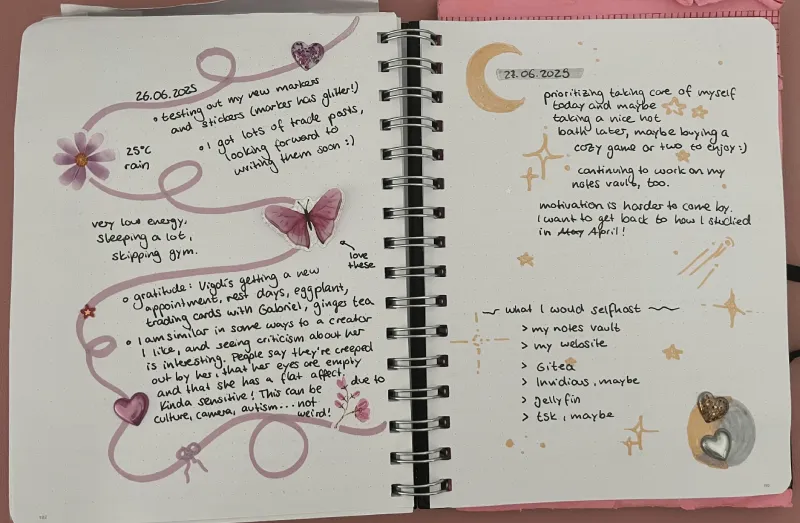 26.06.2025
• testing out my new markers
and stickers (marker has glitter!)
• I got lots of trade posts,
looking forward to
writing them soon :)
25°C
rain
very low energy,
sleeping a lot,
skipping gym.
love
these
• gratitude: Vigdis getting a new
appointment, rest days, eggplant,
trading cards with Gabriel, ginger tea
• I am similar in some ways to a creator
I like, and seeing criticism about her
is interesting. People say they're creeped
out by her, that her eyes are empty
and that she has a flat affect;
kinda sensitive! This can be due to
culture, camera, autism... not
weird!
27.06.2025
prioritizing taking care of myself
today and maybe
taking a nice hot
bath later, maybe buying a
cozy game or two to enjoy :)
continuing to work on my
notes vault, too.
motivation is harder to come by.
I want to get back to how I studied
in May April!
what I would selfhost
> my notes vault
> my website
> Gitea
> Invidious, maybe
> jellyfin
> tsk, maybe